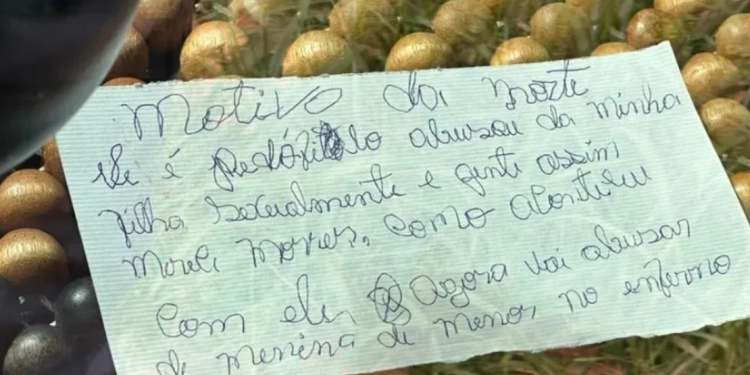 Motivo da morte
ele é pedófilo abusou da minha
filha sexualmente e gente assim
mereci morrer, como aconteceu
com ele. Agora vai abusar
de menina de menor no enferno